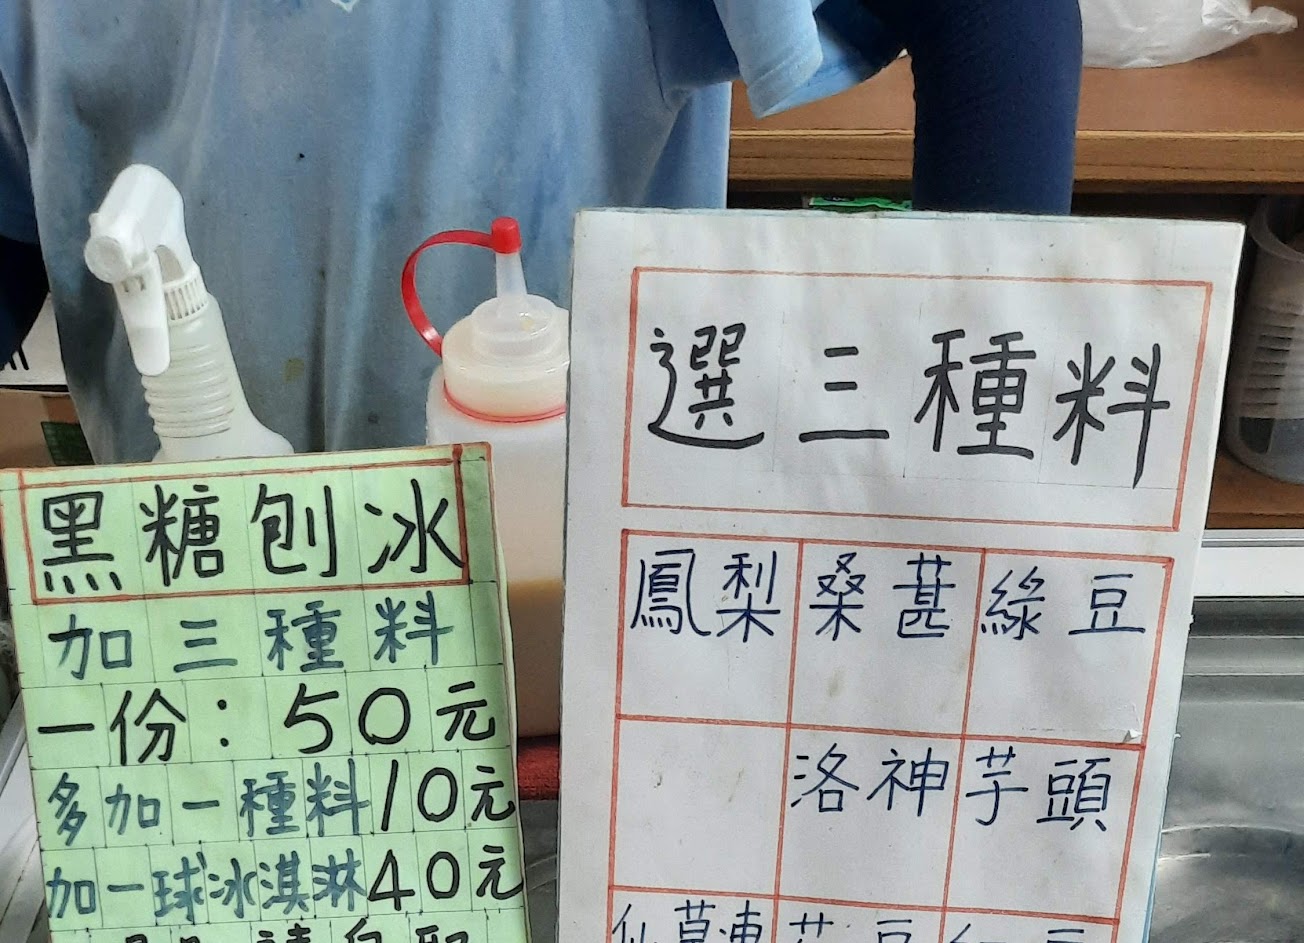 黑糖刨冰
加三種料
一份：50元
多加一種料10元
加一球冰淇淋40元
選三種料
鳳梨 桑葚 綠豆
洛神 芋頭